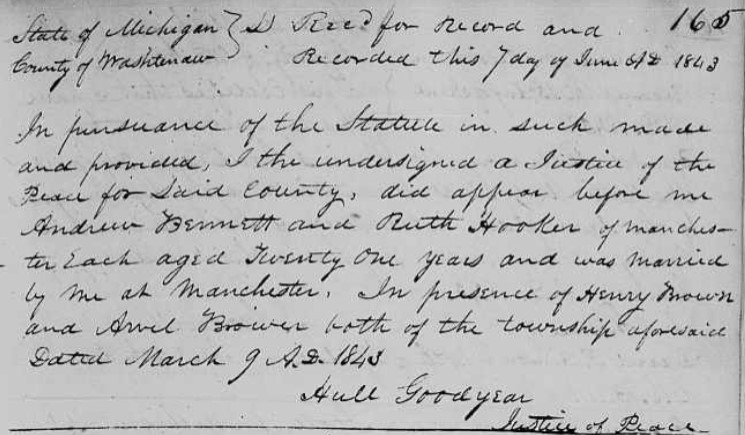 State of Michigan } Rec'd for Record and 165
County of Washtenaw } Recorded this 7 day of June A D 1843
In pursuance of the Statute in such made
and provided, I the undersigned a Justice of the
Peace for Said County, did appear before me
Andrew Bennett and Ruth Hooker of manches-
ter Each aged Twenty One years and was married
by me at Manchester. In presence of Henry Brown
and Arvel Brower both of the township aforesaid
Dated March 9 A.D. 1843
Hull Goodyear
Justice of Peace